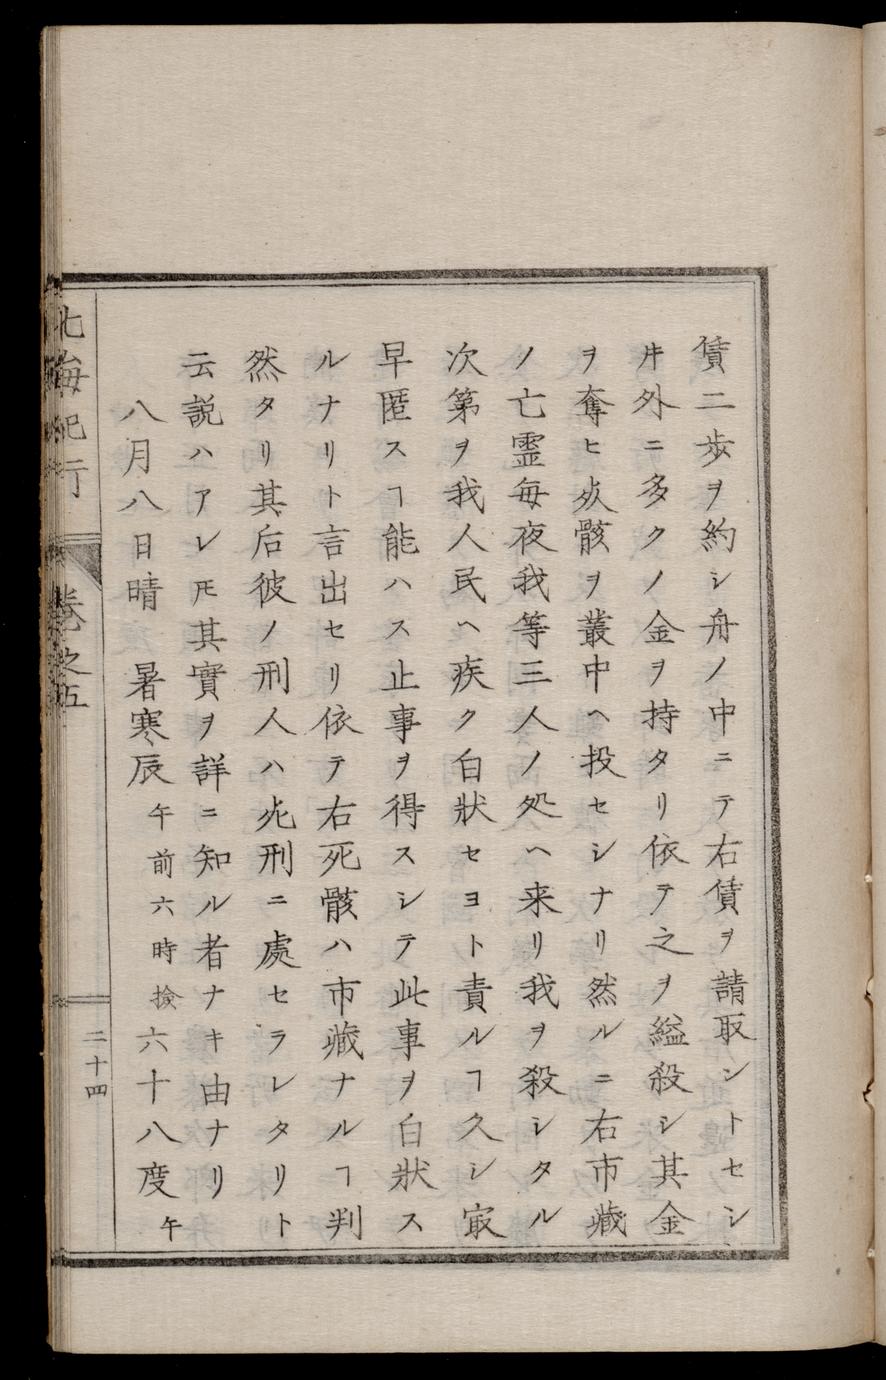 賃二歩ヲ約シ舟ノ中ニテ右賃ヲ請取ントセシ
井外ニ多クノ金ヲ持タリ依テ之ヲ縊殺シ其金
ヲ奪ヒ死骸ヲ叢中ヘ投セシナリ然ルニ右市藏
ノ亡霊毎夜我等三人ノ処ヘ来リ我ヲ殺シタル
次第ヲ我人民ヘ疾ク白狀セヨト責ルヿ久シ㝡
早匿スヿ能ハス止事ヲ得スシテ此事ヲ白狀ス
ルナリト言出セリ依テ右死骸ハ市藏ナルヿ判
然タリ其后彼ノ刑人ハ死刑ニ處セラレタリト
云説ハアレ𪜈其實ヲ詳ニ知ル者ナキ由ナリ
八月八日晴 暑寒辰午前六時撿六十八度午
北海紀行 巻之五 二十四